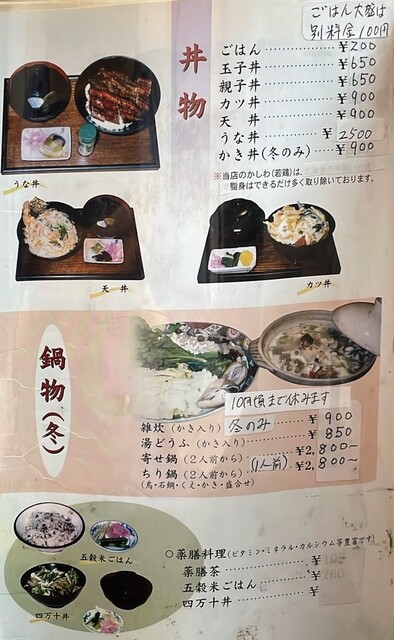 ごはん大盛は
別料金100円
丼物
ごはん ¥200
玉子丼 ¥650
親子丼 ¥650
カツ丼 ¥900
天丼 ¥900
うな丼 ¥2500
かき丼(冬のみ) ¥900
※当店のかしわ(若鶏)は、
脂身はできるだけ多く取り除いております。
うな丼
天丼
カツ丼
鍋物(冬)
10月頃まで休みます
雑炊(かき入り) 冬のみ ¥900
湯どうふ(かき入り) ¥850
寄せ鍋(2人前から) (1人前) ¥2,800〜
ちり鍋(2人前から) ¥2,800〜
(鳥・石鯛・くえ・かき・盛合せ)
五穀米ごはん
四万十丼
○薬膳料理(ビタミン・ミネラル・カルシウム等豊富です)
薬膳茶 ¥
五穀米ごはん ¥
四万十丼 ¥